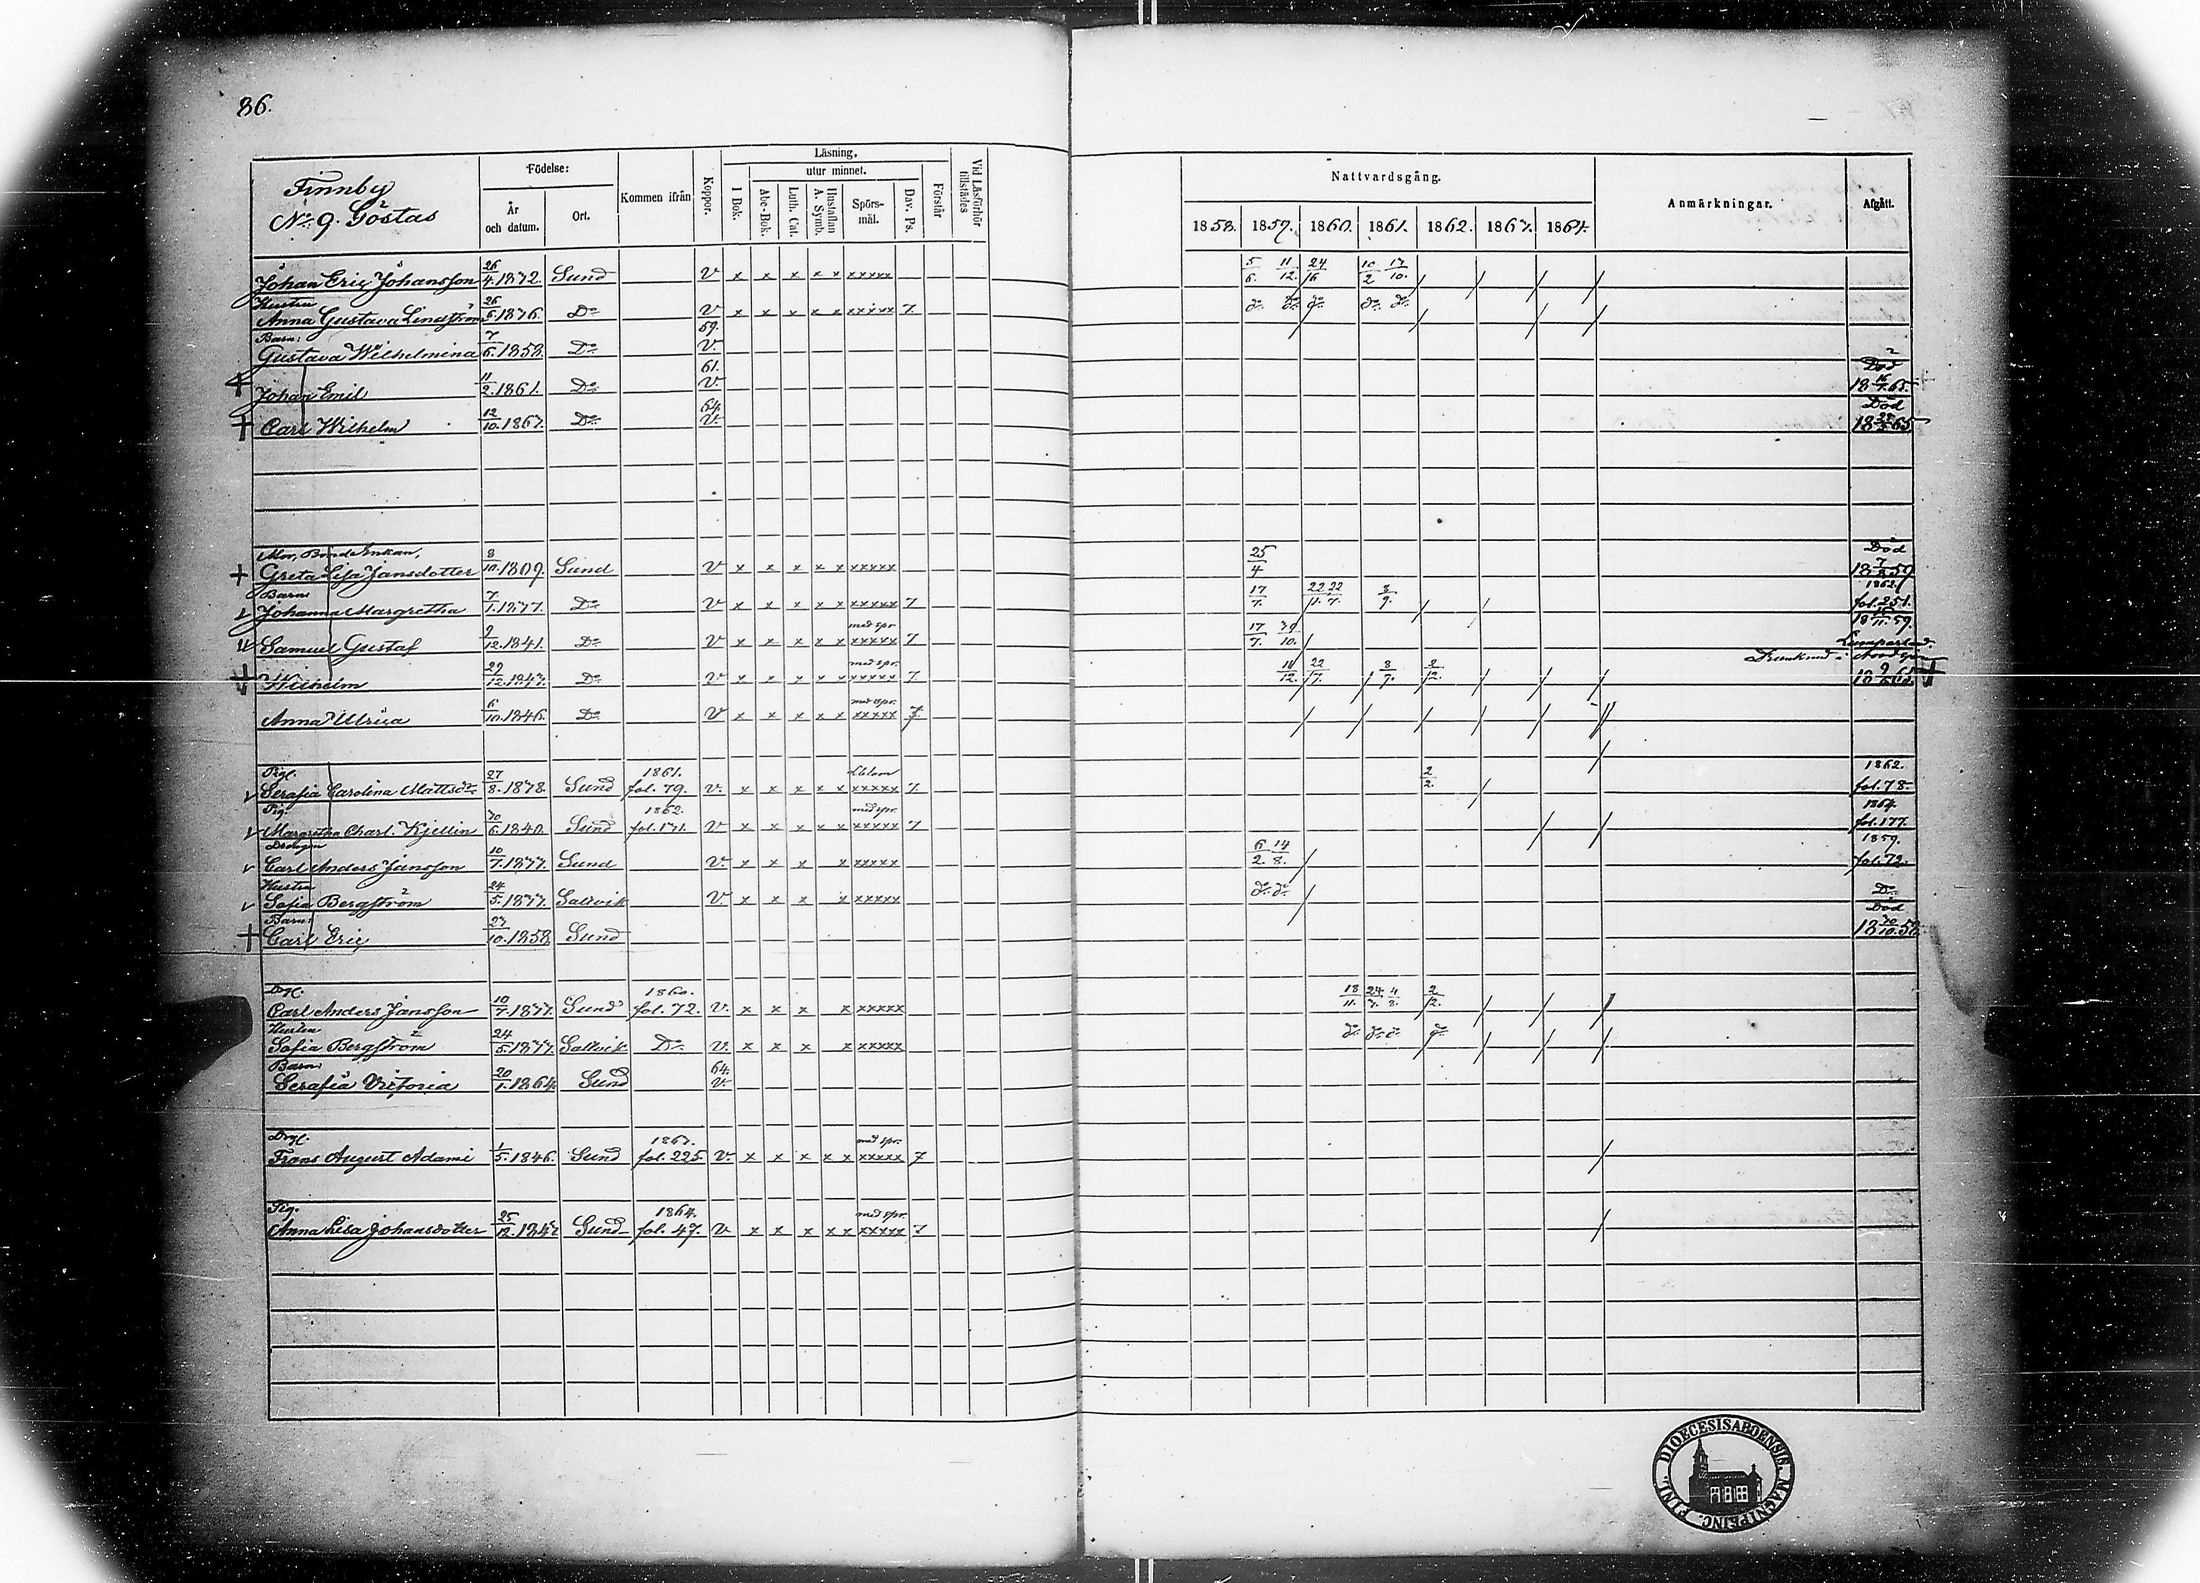 86.
Finnby
No 9. Göstas
Födelse:
År och datum.
Ort.
Kommen ifrån
Koppor.
Läsning,
utur minnet.
I Bok.
Abc-Bok.
Luth. Cat.
Hustaflan A. Symb.
Spörs-mål.
Dav. Ps.
Förstår
Vid Läsförhör tillstädes
Nattvardsgång.
1858. 1859. 1860. 1861. 1862. 1863. 1864.
Anmärkningar.
Afgått.
Johan Eric Johansson 26/4 1832. Sund V x x x x x xxxxx 5/6. 11/12. 24/6 10/2 13/10.
Hustru
Anna Gustava Lindström 26/5 1836. Do V x x x x x xxxxx 7. do do do do do
Barn:
Gustava Wilhelmina 7/6. 1858. Do 59. V.
Johan Emil 11/2. 1861. Do 61. V. Död 18 16/4. 65.
Carl Wilhelm 12/10. 1863. Do 64. V. Död
Mor, Bonde Enkan,
Greta Lisa Jansdotter 8/10. 1809. Sund V x x x x x xxxxx 25/4 Död
Barn:
Johanna Margretha 7/1. 1837. Do V x x x x x xxxxx 7 17/7. 22/11. 22/7. 8/9. 1862. fol. 251.
Samuel Gustaf 9/12. 1841. Do V x x x x x med spr. xxxxx 7. 17/7. 30/10. 18 15/11. 59. Lumparland.
Wilhelm 29/12. 1843. Do V x x x x x med spr. xxxxx 7 11/12. 22/7. 8/9. 2/12. Drunknad i
Anna Ulrica 6/10. 1846. Do V x x x x x med spr. xxxxx 7.
Pig.
Serafia Carolina Mattsdr 27/8. 1838. Sund 1861. fol. 79. V. x x x x x xxxxx 7. 2/2. 1862. fol. 78.
Pig.
Margretha Charl. Kjellin 30/6. 1840. Sund 1862. fol. 171. V x x x x x med spr. xxxxx 7 1864. fol. 177.
Carl Anders Jansson 10/7. 1833. Sund V. x x x x xxxxx 6/2. 14/8. 1859. fol. 72.
Hustru
Sofia Bergström 24/5. 1833. Saltvik V x x x x xxxxx do do Do
Barn:
Carl Eric 23/10. 1858. Sund Död 18 30/10. 58.
Drgl.
Carl Anders Jansson 10/7. 1833. Sund 1860. fol. 72. V. x x x x xxxxx 18/11. 24/3. 4/8. 2/12.
Hustru
Sofia Bergström 24/5. 1833. Saltvik Do V. x x x x xxxxx do do do do
Barn:
Serafia Victoria 20/1. 1864. Sund 64. V.
Drgl.
Frans August Adami 1/5. 1846. Sund 1863. fol. 225. V. x x x x x med spr. xxxxx 7
Pig.
Anna Lisa Johansdotter Sund 1864. fol. 47. V x x x x x med spr. xxxxx 7
FINL. DIOECESIS ABOENSIS. MAGN. PRINC.